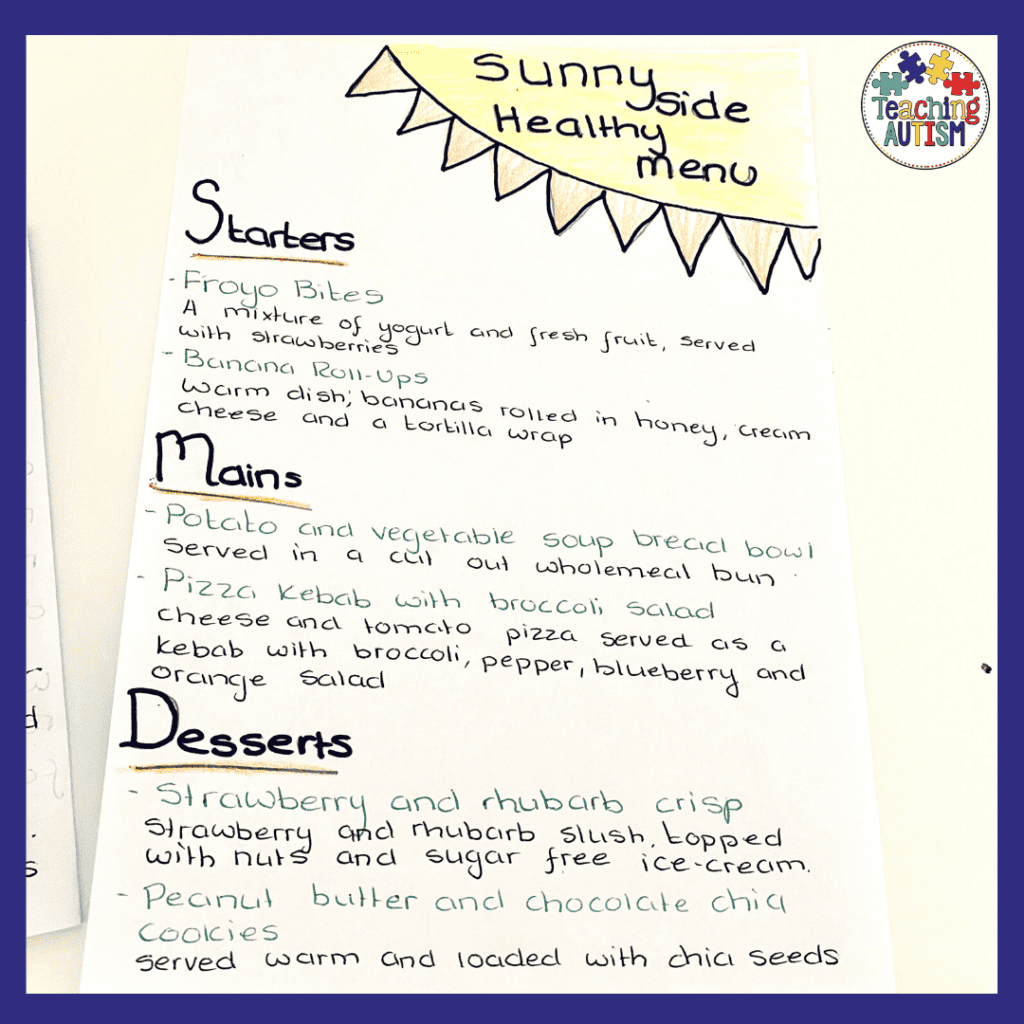 Sunny
side
Healthy
menu
Teaching
AUTISM
Starters
- Froyo Bites
A mixture of yogurt and fresh fruit, served
with strawberries
- Banana Roll-Ups
warm dish; bananas rolled in honey, cream
cheese and a tortilla wrap
Mains
- Potato and vegetable soup bread bowl
served in a cut out wholemeal bun
- Pizza kebab with broccoli salad
cheese and tomato pizza served as a
kebab with broccoli, pepper, blueberry and
orange salad
Desserts
- Strawberry and rhubarb crisp
strawberry and rhubarb slush, topped
with nuts and sugar free ice-cream.
- Peanut butter and chocolate chia
cookies
served warm and loaded with chia seeds